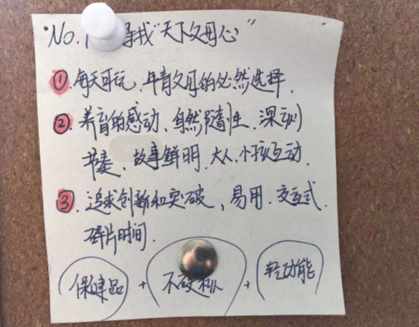 No.1 寻找"天下父母心"
① 每天可玩，年青父母的必然选择
② 养育的感动、自然随性、深刻
节奏、故事鲜明、大人小孩互动
③ 追求创新和突破，易用、交互式
碎片时间
保健品 + 不硬 + 轻功能